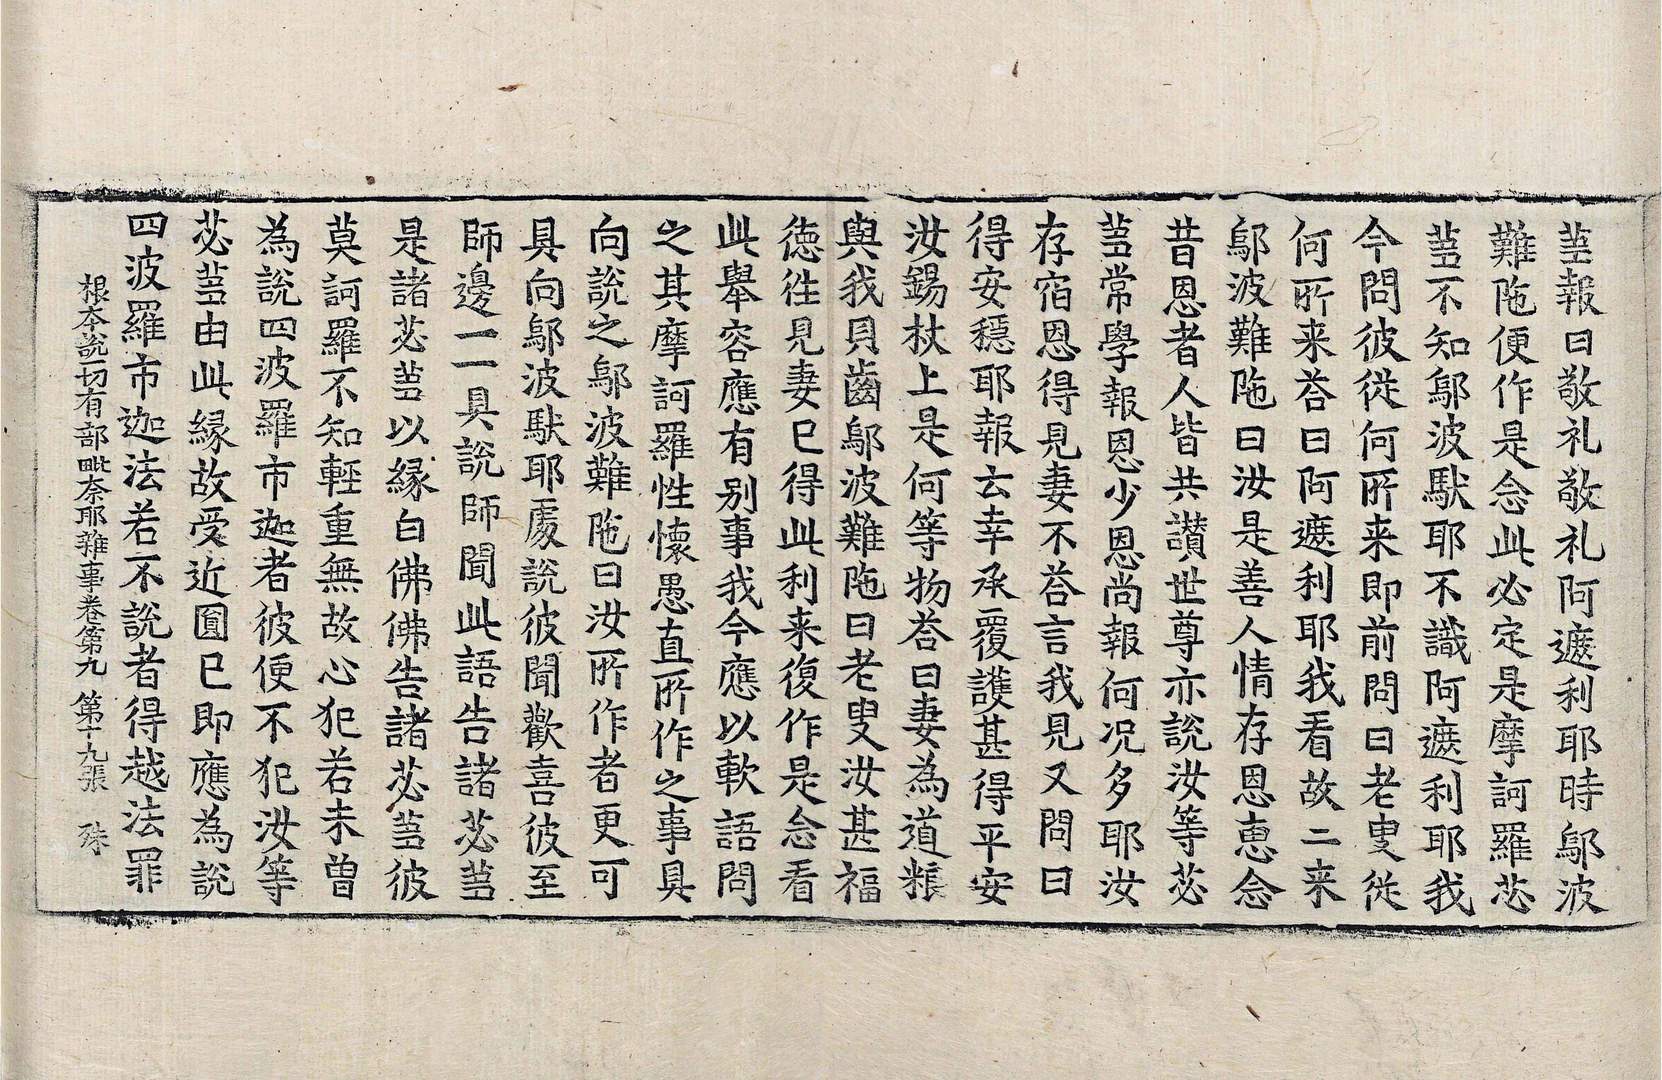 䒭報曰敬礼敬礼阿遮利耶時鄔波
難陁便作是念此必定是摩訶羅苾
䒭不知鄔波馱耶不識阿遮利耶我
今問彼從何所来即前問曰老叟從
何所来荅曰阿遮利耶我看故二来
鄔波難陁曰汝是善人情存恩恵念
昔恩者人皆共讃世尊亦説汝等苾
䒭常學報恩少恩尚報何况多耶汝
存宿恩得見妻不荅言我見又問曰
得安穏耶報云幸承覆護甚得平安
汝錫杖上是何等物荅曰妻為道粮
與我貝齒鄔波難陁曰老叟汝甚福
徳徃見妻已得此利来復作是念看
此舉容應有别事我今應以軟語問
之其摩訶羅性懷愚直所作之事具
向説之鄔波難陁曰汝所作者更可
具向鄔波馱耶處説彼聞歡喜彼至
師邊一一具説師聞此語告諸苾䒭
是諸苾䒭以縁白佛佛告諸苾䒭彼
莫訶羅不知輕重無故心犯若未曽
為説四波羅市迦者彼便不犯汝等
苾䒭由此縁故受近圎已即應為説
四波羅市迦法若不説者得越法罪
根本説一切有部毗奈耶雜事卷第九　第十九張　殊